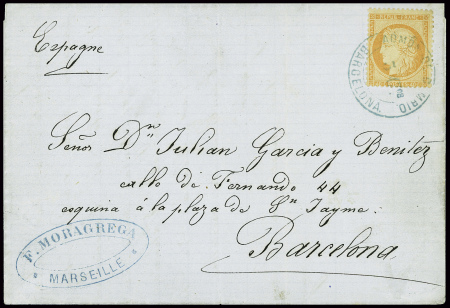 Espagne
REPUB. FRANC.
BARCELONA
Señor Dn Julian Garcia y Benitez
calle de Fernando 44
esquina á la plaza de Sn Jayme.
Barcelona
F. MORAGREGA
MARSEILLE